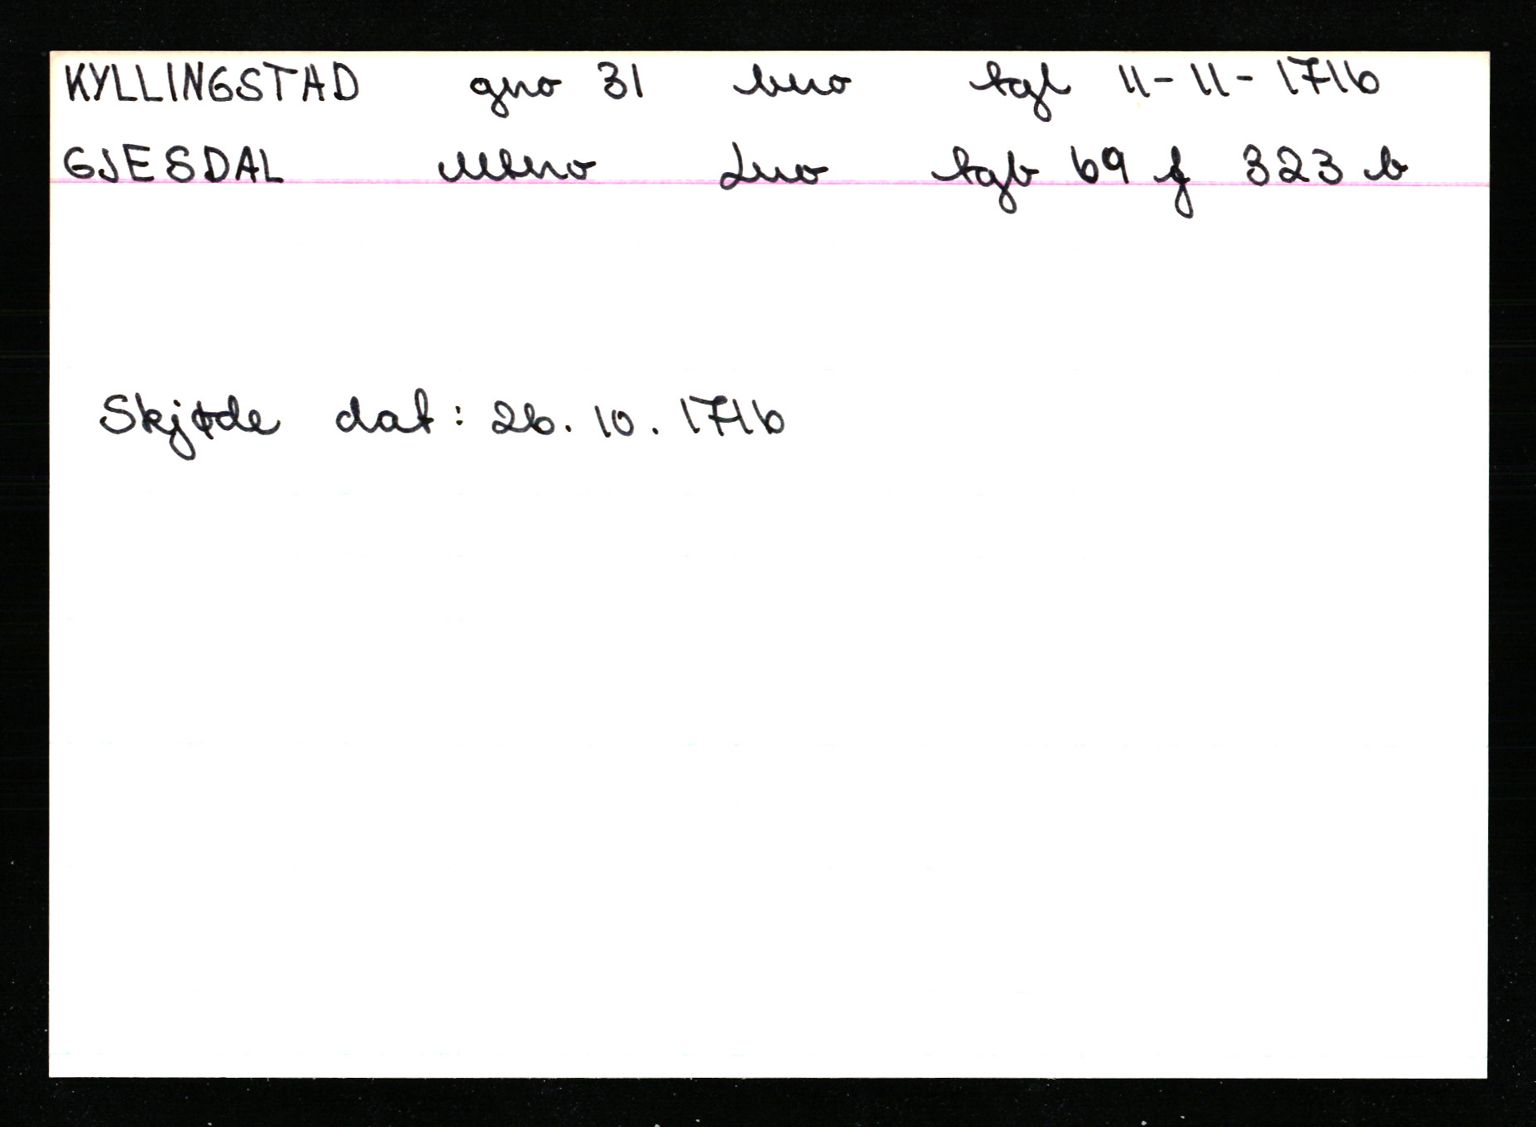 KYLLINGSTAD gno 31 bno tgl 11-11-1716
GJESDAL mtno lno tgb 69 f 323 b
Skjøde dat: 26. 10. 1716